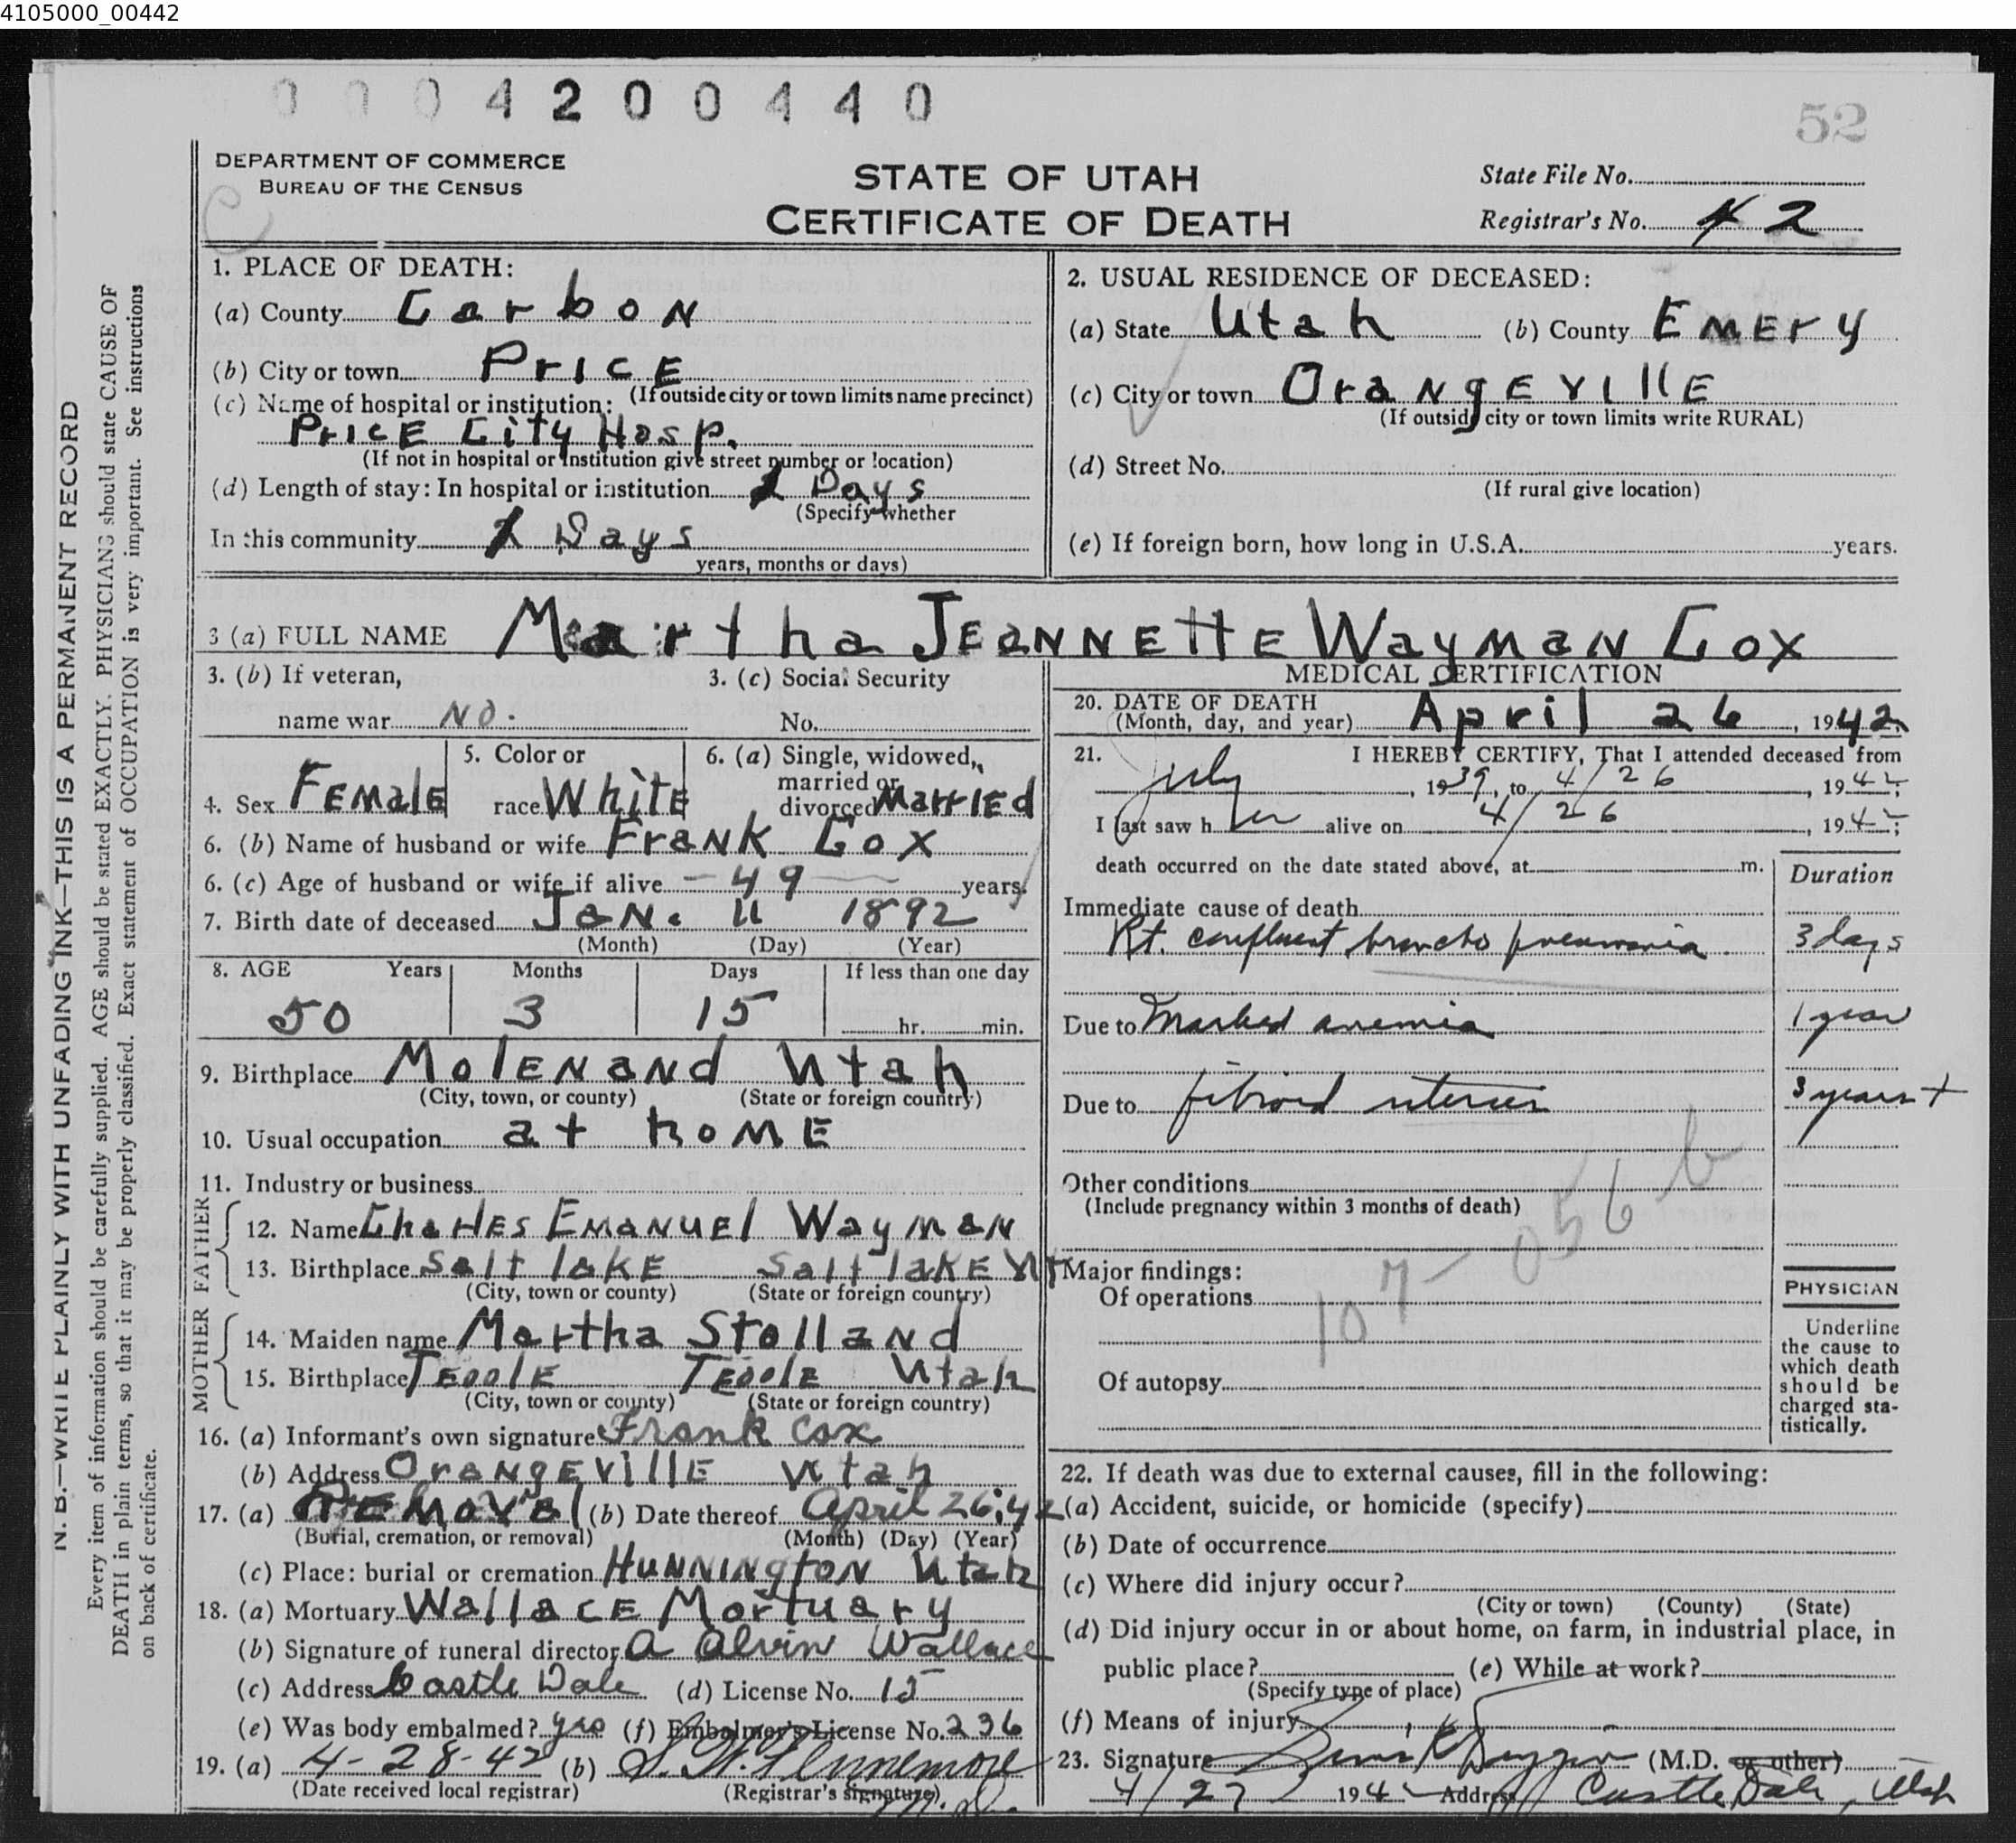 4105000_00442
0004200440
52
DEPARTMENT OF COMMERCE
BUREAU OF THE CENSUS
STATE OF UTAH
CERTIFICATE OF DEATH
State File No.
Registrar's No. 42
N. B.—WRITE PLAINLY WITH UNFADING INK—THIS IS A PERMANENT RECORD
Every item of information should be carefully supplied. AGE should be stated EXACTLY. PHYSICIANS should state CAUSE OF
DEATH in plain terms, so that it may be properly classified. Exact statement of OCCUPATION is very important. See instructions
on back of certificate.
1. PLACE OF DEATH:
(a) County Carbon
(b) City or town Price
(If outside city or town limits name precinct)
(c) Name of hospital or institution:
Price City Hosp.
(If not in hospital or institution give street number or location)
(d) Length of stay: In hospital or institution Days
(Specify whether
In this community Days
years, months or days)
2. USUAL RESIDENCE OF DECEASED:
(a) State Utah (b) County Emery
(c) City or town Orangeville
(If outside city or town limits write RURAL)
(d) Street No.
(If rural give location)
(e) If foreign born, how long in U.S.A. years.
3 (a) FULL NAME Martha Jeannette Wayman Cox
3. (b) If veteran, name war No.
3. (c) Social Security No.
4. Sex Female
5. Color or race White
6. (a) Single, widowed, married or divorced Married
6. (b) Name of husband or wife Frank Cox
6. (c) Age of husband or wife if alive — 49 — years
7. Birth date of deceased Jan. 11 1892
(Month) (Day) (Year)
8. AGE Years Months Days If less than one day
50 3 15 hr. min.
9. Birthplace Molenand Utah
(City, town, or county) (State or foreign country)
10. Usual occupation at home
11. Industry or business
FATHER
12. Name Charles Emanuel Wayman
13. Birthplace Salt lake Salt lake Ut
(City, town or county) (State or foreign country)
MOTHER
14. Maiden name Martha Stolland
15. Birthplace Teoole Teoole Utah
(City, town or county) (State or foreign country)
16. (a) Informant's own signature Frank Cox
(b) Address Orangeville Utah
17. (a) Removal (b) Date thereof April 26, 42
(Burial, cremation, or removal) (Month) (Day) (Year)
(c) Place: burial or cremation Hunnington Utah
18. (a) Mortuary Wallace Mortuary
(b) Signature of funeral director A Alvin Wallace
(c) Address Castle Dale (d) License No. 15
(e) Was body embalmed? yes (f) Embalmer's License No. 236
19. (a) 4-28-42 (b)
(Date received local registrar) (Registrar's signature)
MEDICAL CERTIFICATION
20. DATE OF DEATH
(Month, day, and year) April 26, 1942
21. I HEREBY CERTIFY, That I attended deceased from
July, 1939, to 4/26, 1942;
I last saw her alive on 4/26, 1942;
death occurred on the date stated above, at m.
Duration
Immediate cause of death
Rt. confluent broncho pneumonia 3 days
Due to Marked anemia 1 year
Due to fibroid uterus 3 years +
Other conditions
(Include pregnancy within 3 months of death)
107-056b
Major findings:
Of operations
Of autopsy
PHYSICIAN
Underline
the cause to
which death
should be
charged sta-
tistically.
22. If death was due to external causes, fill in the following:
(a) Accident, suicide, or homicide (specify)
(b) Date of occurrence
(c) Where did injury occur?
(City or town) (County) (State)
(d) Did injury occur in or about home, on farm, in industrial place, in
public place? (e) While at work?
(Specify type of place)
(f) Means of injury
23. Signature (M.D. or other)
4/27 1942 Address Castle Dale, Utah